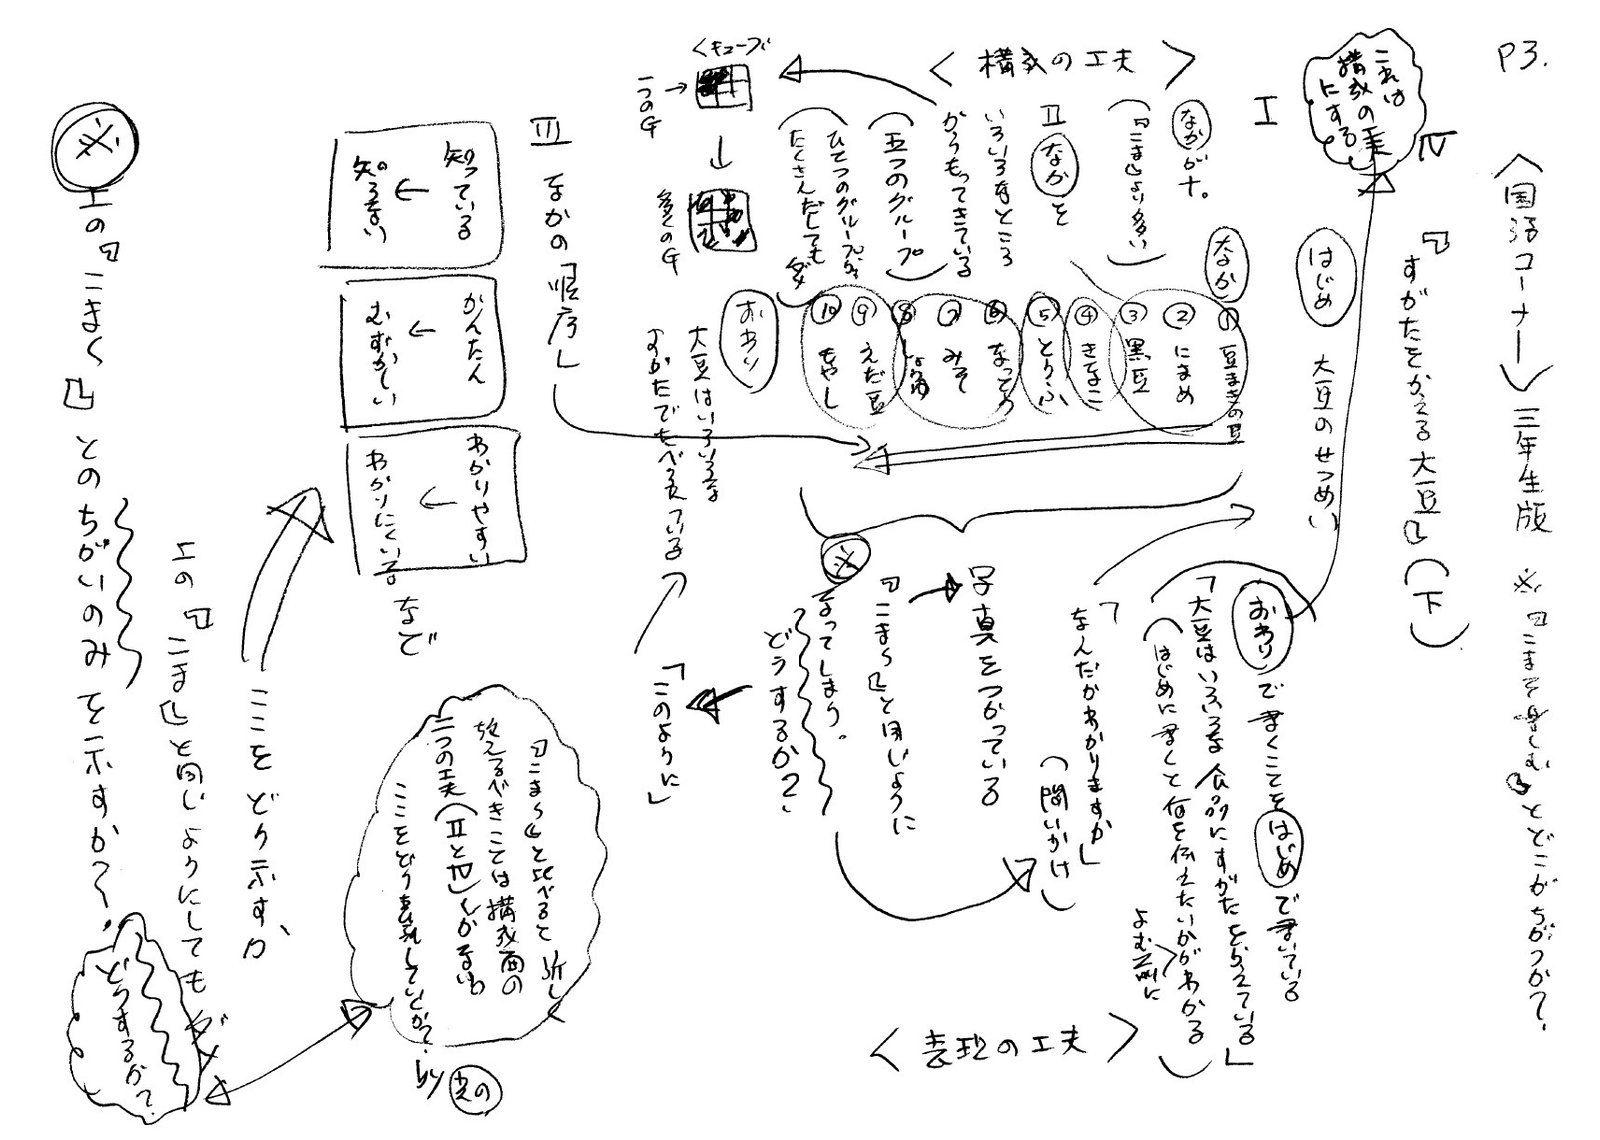 P3.
〈国語コーナー〉三年生版 ※『こまを楽しむ』とどこがちがうか?
『すがたをかえる大豆』(下)
これは
構成の工夫
にする
Ⅳ
Ⅰ
はじめ 大豆のせつめい
〈構成の工夫〉
なかが十。
(『こま』より多い)
Ⅱ なかを
いろいろなところ
からもってきている
(五つのグループ)
(ひとつのグループから
たくさんだしてもダメ)
〈キューブ
一つのG
多くのG
なか
① 豆まきの豆
② にまめ
③ 黒豆
④ きなこ
⑤ とうふ
⑥ なっとう
⑦ みそ
⑧ しょうゆ
⑨ えだ豆
⑩ もやし
おわり
大豆はいろいろな
すがたでたべられている
Ⅲ なかの「順序」
知っている
知らない
かんたん
むずかしい
わかりやすい
わかりにくい
など
おわりで書くことをはじめで書いている
「大豆はいろいろな食品にすがたをかえている」
(はじめに書くと何を伝えたいかがわかる)
よむ前に
「なんだかわかりますか」
(問いかけ)
〈表現の工夫〉
写真をつかっている
『こま〜』と同じように
※ なってしまう。
どうするか?
「このように」
『こま〜』と比べると新しく
教えるべきことは構成面の
二つの工夫(ⅡとⅣ)しかないわ
ここをどう表現していくか?
by
ここをどう示すか
上の『こま』と同じようにしてもダメ
※ 上の『こま〜』とのちがいのみを示すか?
どうするか?